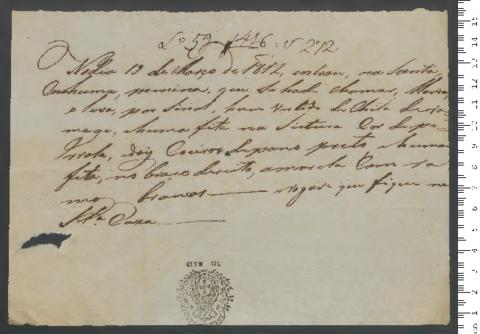 Lº 59 1416 V 272
No dia 13 de Março de 1812, entrou, na Santa
huma, menina, que se hade chamar, Maria
e leva, por Sinal, hum Vestido de Chita de ra-
mage, huma fita na Sintura Cor de pe-
rrola, dois Coeiros de pano preto e huma
fita, no braço direito, amarela Com ra
mos brancos — rogase que fique na
Sta Caza —